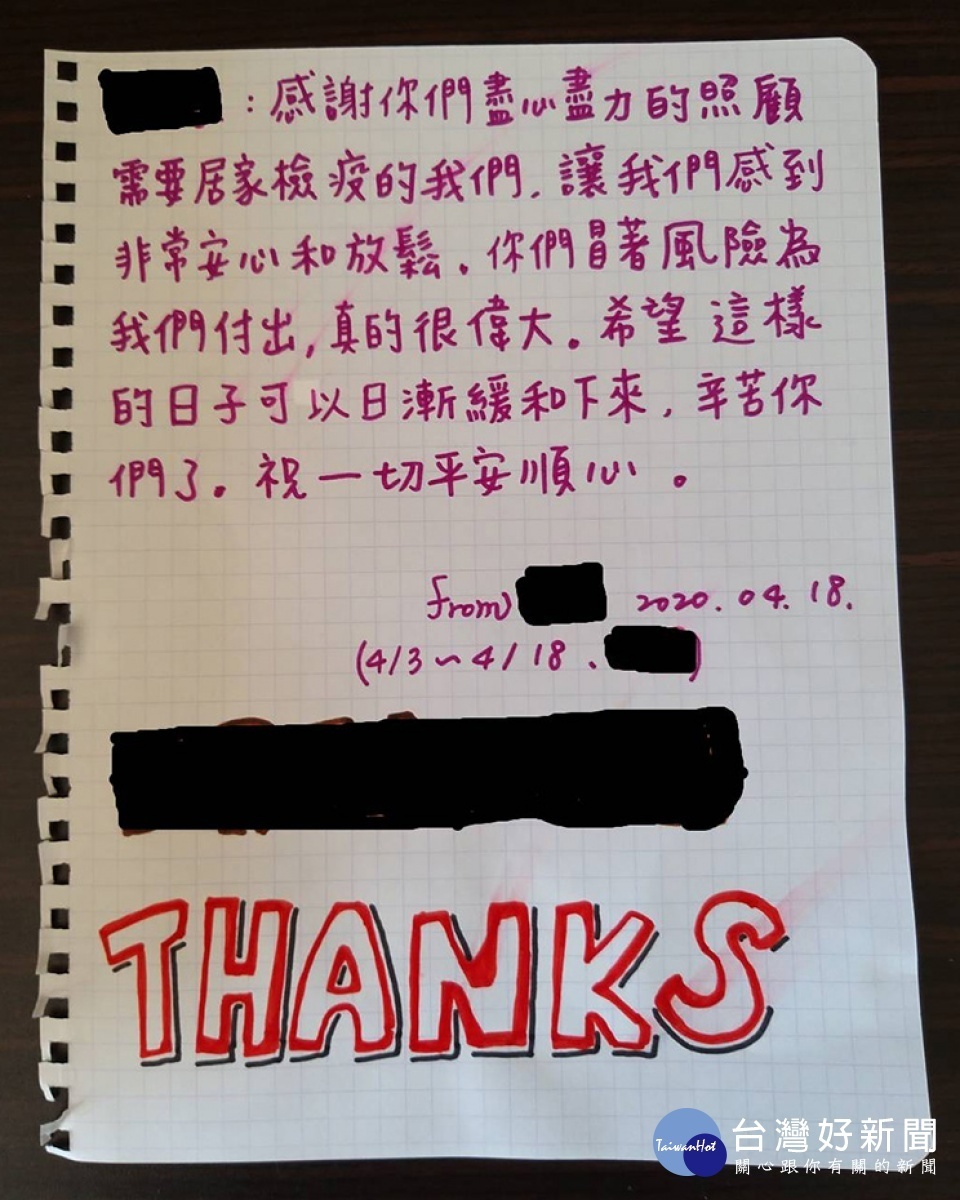 ：感謝你們盡心盡力的照顧
需要居家檢疫的我們，讓我們感到
非常安心和放鬆。你們冒著風險為
我們付出，真的很偉大。希望這樣
的日子可以日漸緩和下來，辛苦你
們了。祝一切平安順心。
from 2020.04.18.
(4/3～4/18、)
THANKS
TaiwanHot 台灣好新聞
關心跟你有關的新聞